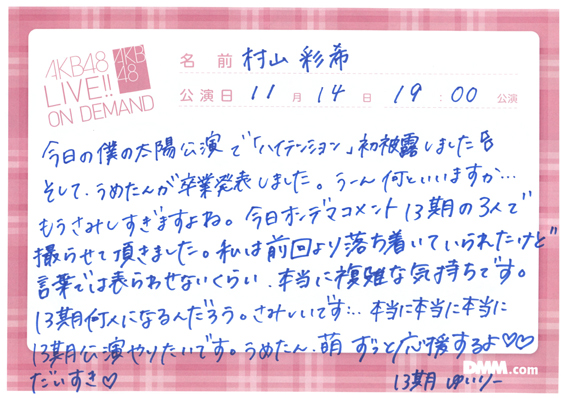 AKB48
LIVE!!
ON DEMAND
AKB
48
名前 村山 彩希
公演日 11月14日 19:00 公演
今日の僕の太陽公演で「ハイテンション」初被露しました
そして、うめたんが卒業発表しました。うーん何といいますか…
もうさみしすぎますよね。今日オンデマコメント13期の3人で
撮らせて頂きました。私は前回より落ち着いていられたけど
言葉では表らわせないくらい、本当に複雑な気持ちです。
13期何人になるんだろう。さみしいです… 本当に本当に本当に
13期公演やりたいです。うめたん、萌 ずっと応援するよ♡♡
だいすき♡
13期 ゆいりー
DMM.com